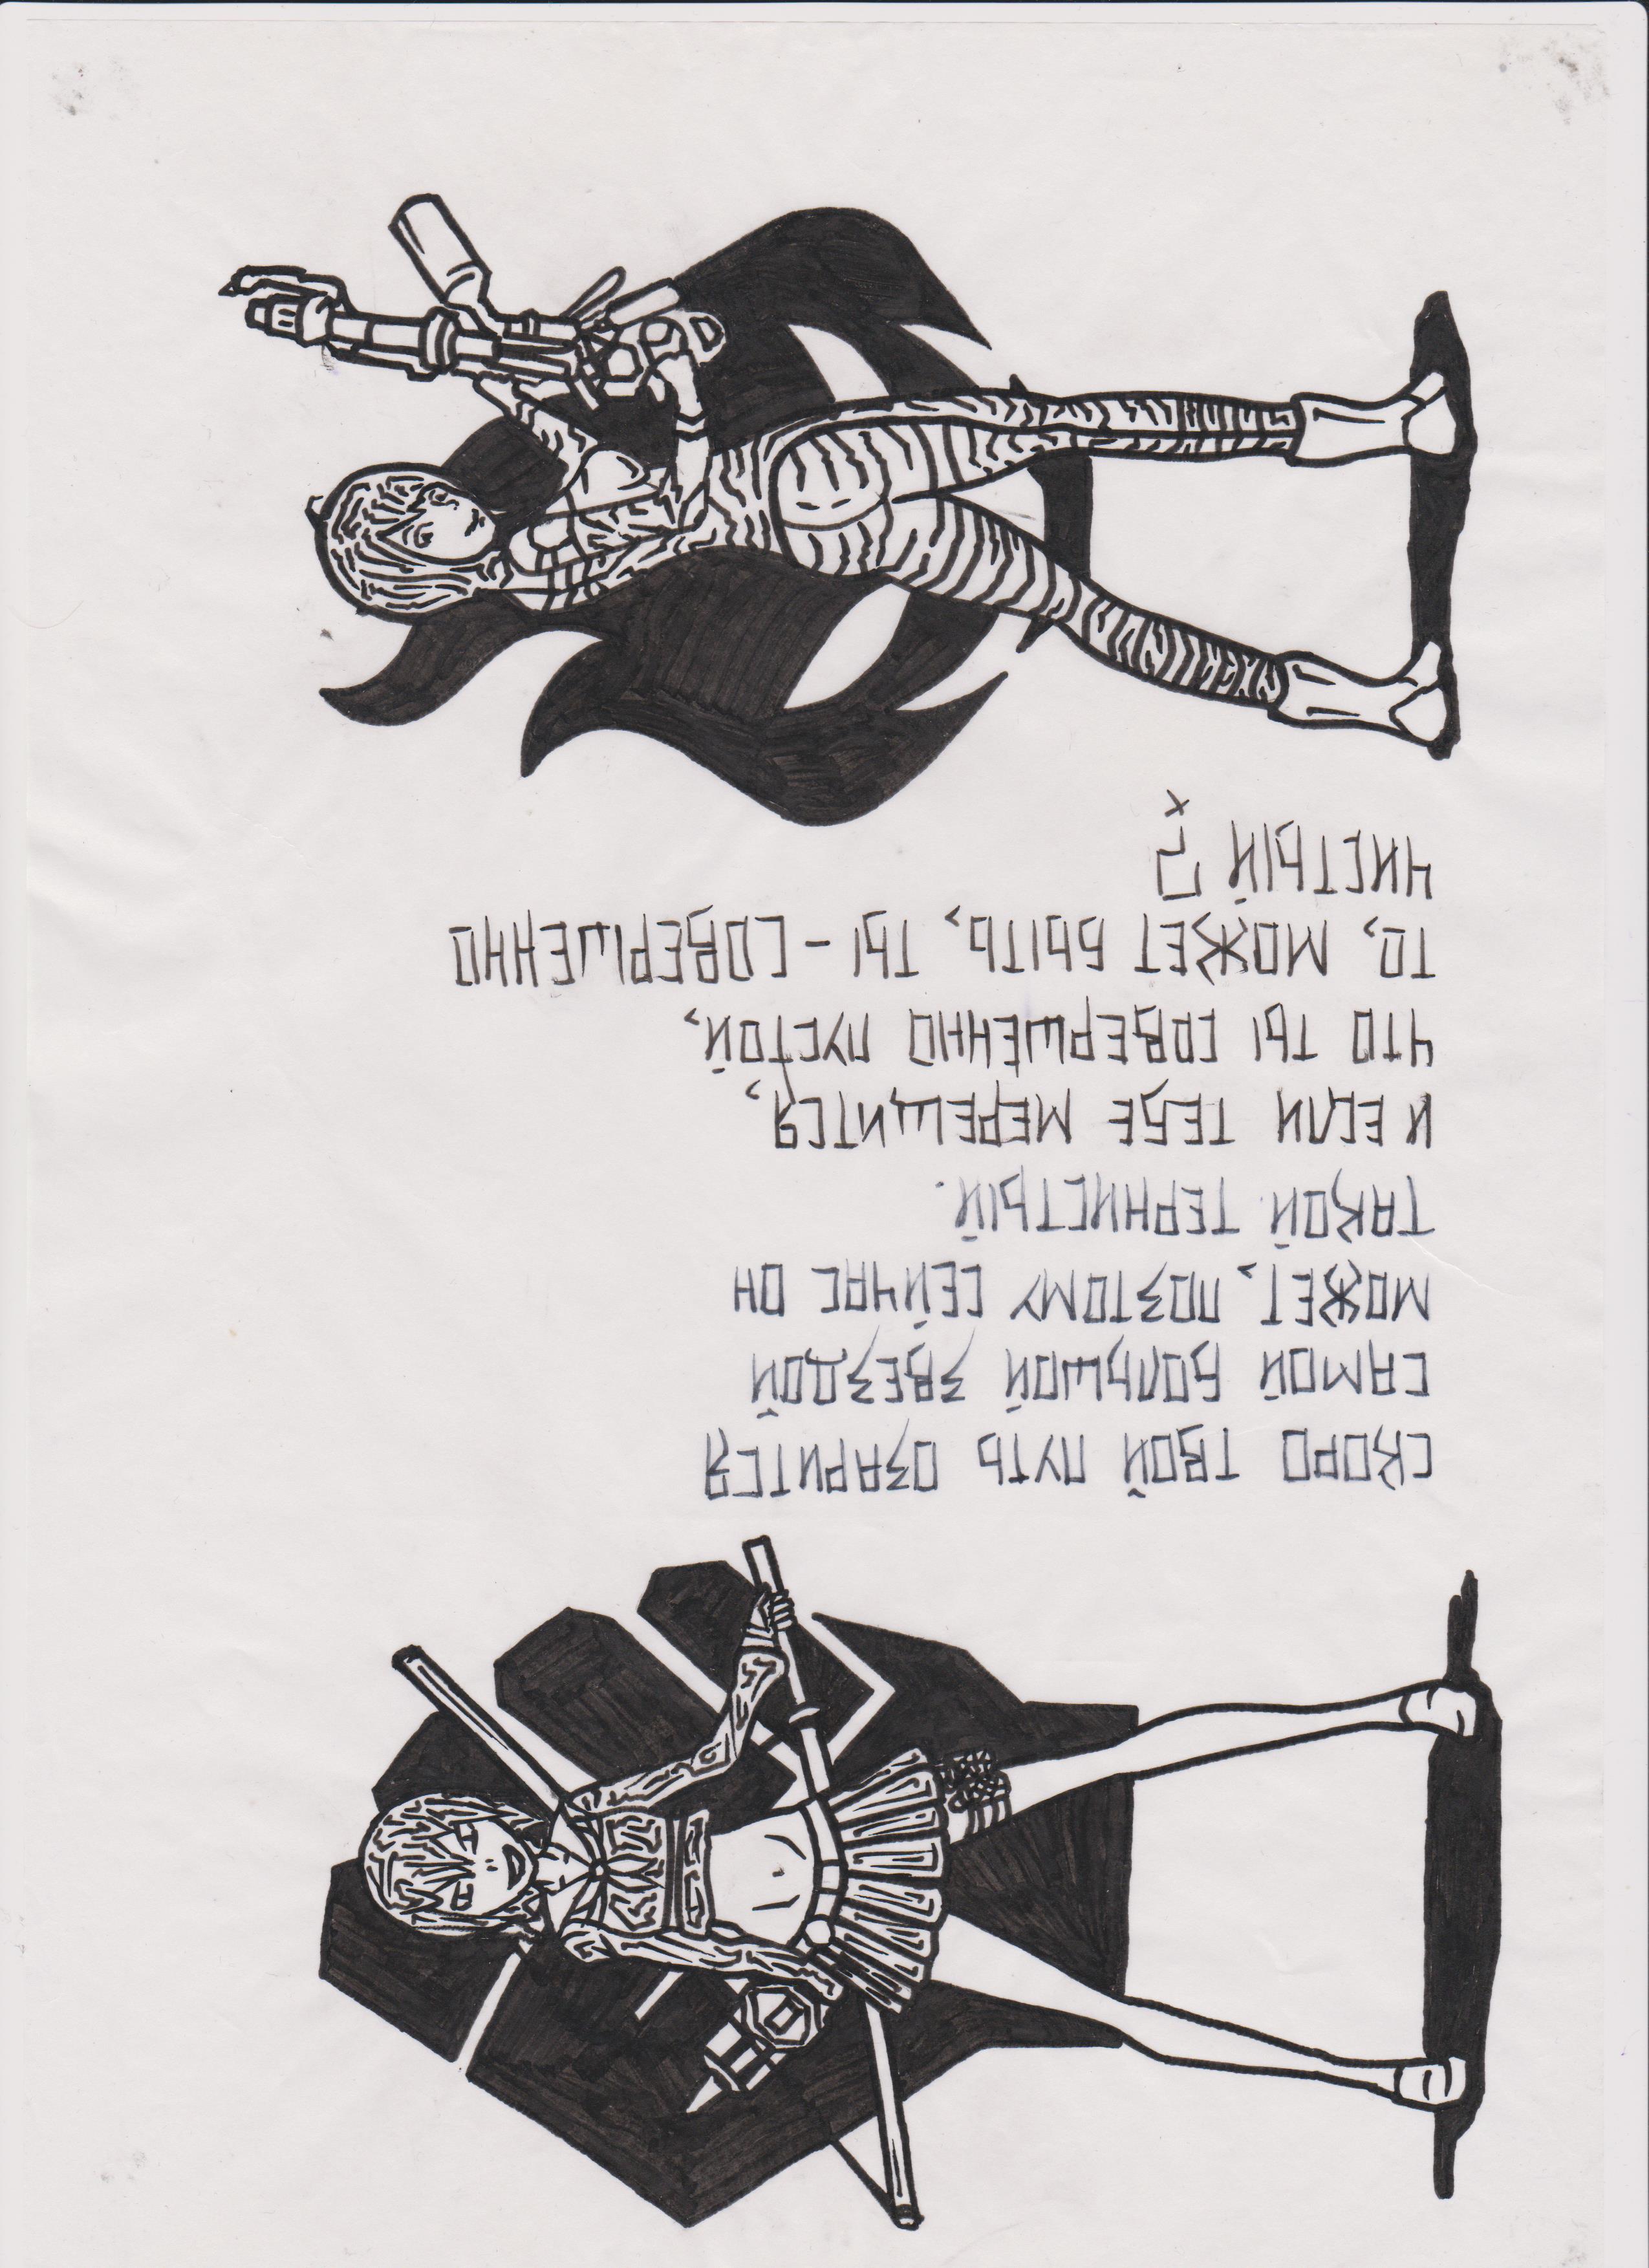 СКОРО ТВОЙ ПУТЬ ОЗАРИТСЯ
САМОЙ БОЛЬШОЙ ЗВЕЗДОЙ
МОЖЕТ, ПОЭТОМУ СЕЙЧАС ОН
ТАКОЙ ТЕРНИСТЫЙ.
И ЕСЛИ ТЕБЕ МЕРЕЩИТСЯ,
ЧТО ТЫ СОВЕРШЕННО ПУСТОЙ,
ТО, МОЖЕТ БЫТЬ, ТЫ - СОВЕРШЕННО
ЧИСТЫЙ?